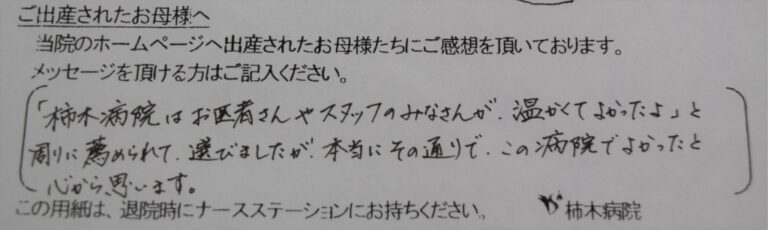 ご出産されたお母様へ
当院のホームページへ出産されたお母様たちにご感想を頂いております。
メッセージを頂ける方はご記入ください。
「柿木病院はお医者さんやスタッフのみなさんが、温かくてよかったよ」と
周りに薦められて、選びましたが、本当にその通りで、この病院でよかったと
心から思います。
この用紙は、退院時にナースステーションにお持ちください。 柿木病院